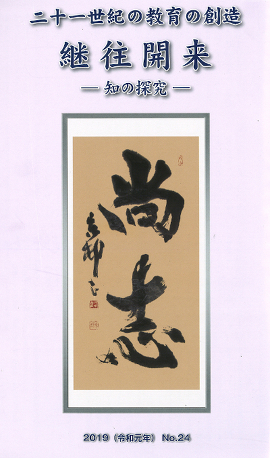 二十一世紀の教育の創造
継往開来
― 知の探究 ―
尚志
2019（令和元年） No.24